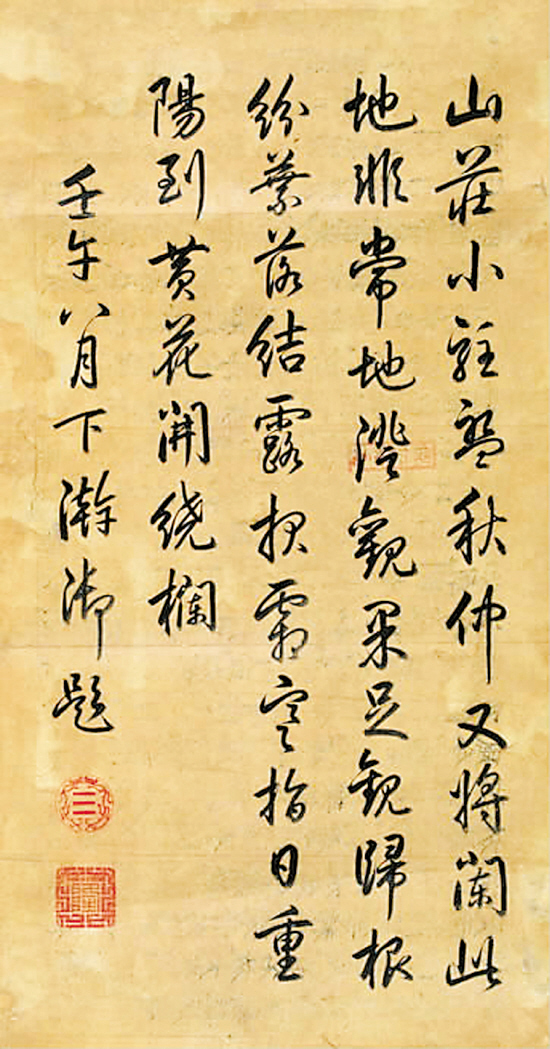 山莊小駐秋仲又將闌此
地非常地澄觀果足觀歸根
紛葉落結露報霜寒指日重
陽到黃花開繞欄
壬午八月下澣御題